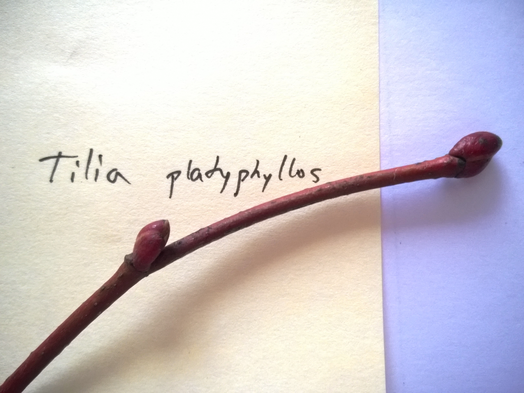 Tilia platyphyllos